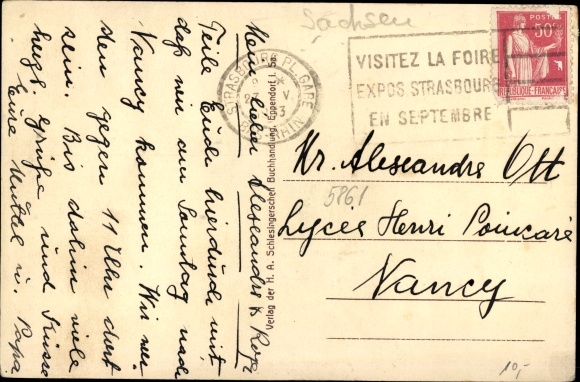 Sachsen
Mein lieber Alexandre & Roger
Teile Euch hierdurch mit,
daß wir am Sonntag nach
Nancy kommen. Wir wer-
den gegen 11 Uhr dort
sein. Bis dahin viele
herzl. Grüße und Küsse
Eure Mutter u. Papa
Verlag der H. A. Schlesingerschen Buchhandlung, Eppendorf i. Sa.
STRASBOURG PL. GARE
VISITEZ LA FOIRE
EXPOS STRASBOURG
EN SEPTEMBRE
POSTES
50c
REPUBLIQUE-FRANÇAISE
Mr. Alexandre Ott
5861
Lycée Henri Poincaré
Nancy
10,-